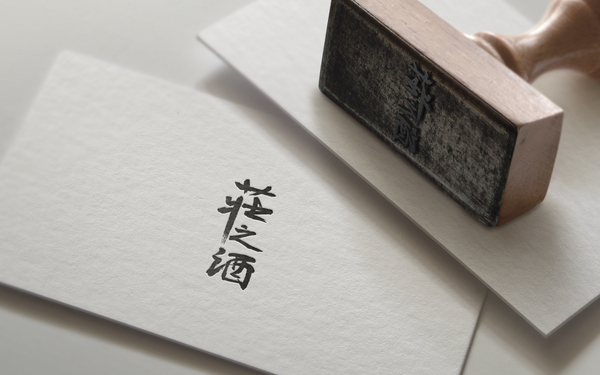 莊之酒